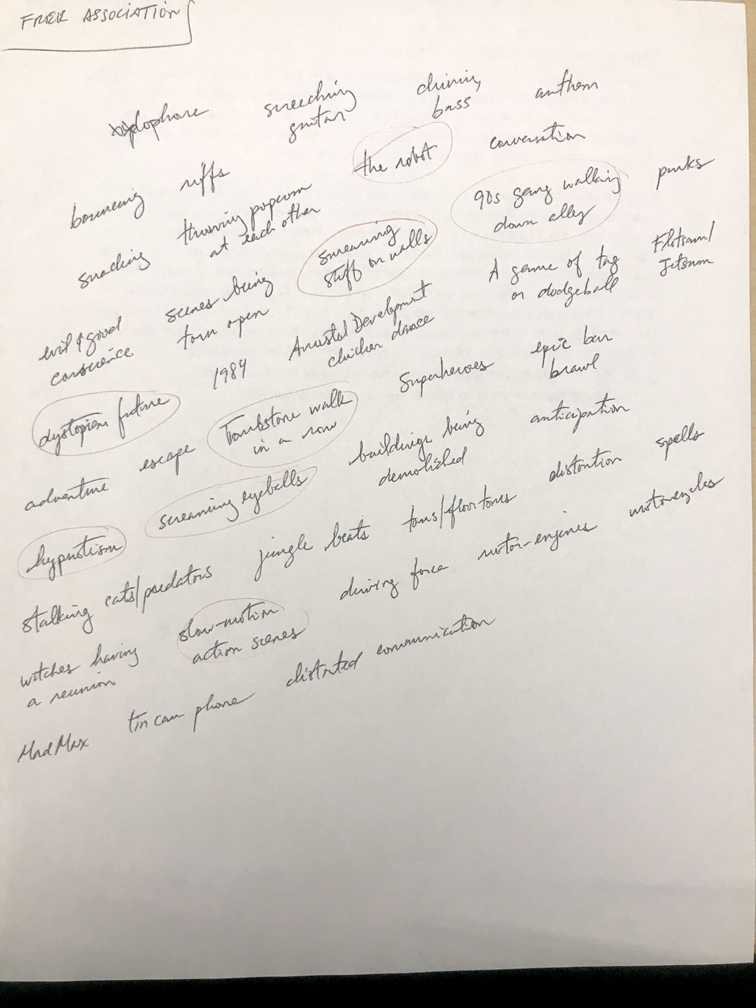 FREE ASSOCIATION
xylophone screeching guitar driving bass anthem
bouncing riffs the robot conversation
snacking throwing popcorn at each other smearing stuff on walls 90s gang walking down alley punks
evil & good conscience scenes being torn open Arrested Development chicken dance A game of tag or dodgeball Flotsam/Jetsum
dystopian future 1984 Superheroes epic bar brawl
adventure escape Tombstone walk in a row buildings being demolished anticipation
hypnotism screaming eyeballs distortion spells
stalking cats/predators jungle beats toms/floor toms motor-engines motorcycles
witches having a reunion slow-motion action scenes driving force
Mad Max tin can phone distorted communication